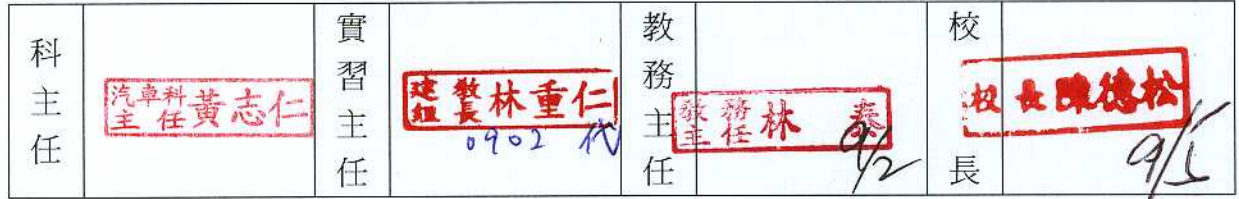 科主任
汽車科主任 黃志仁
實習主任
建教組長 林重仁
0902 代
教務主任
教務主任 林 泰
9/2
校長
校長 陳德松
9/5